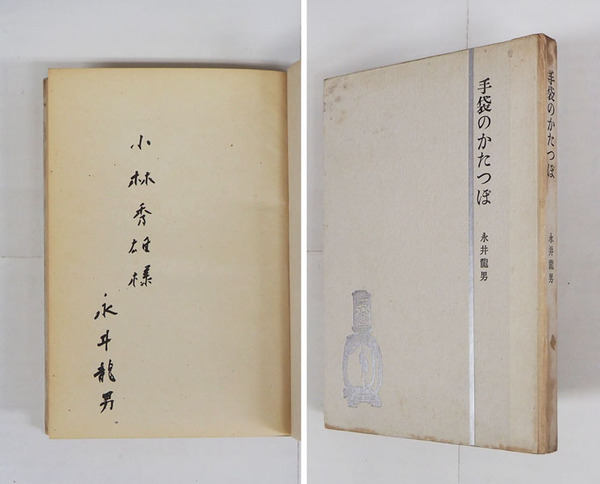 小林秀雄様
永井龍男
手袋のかたつぽ
永井龍男
手袋のかたつぽ
永井龍男